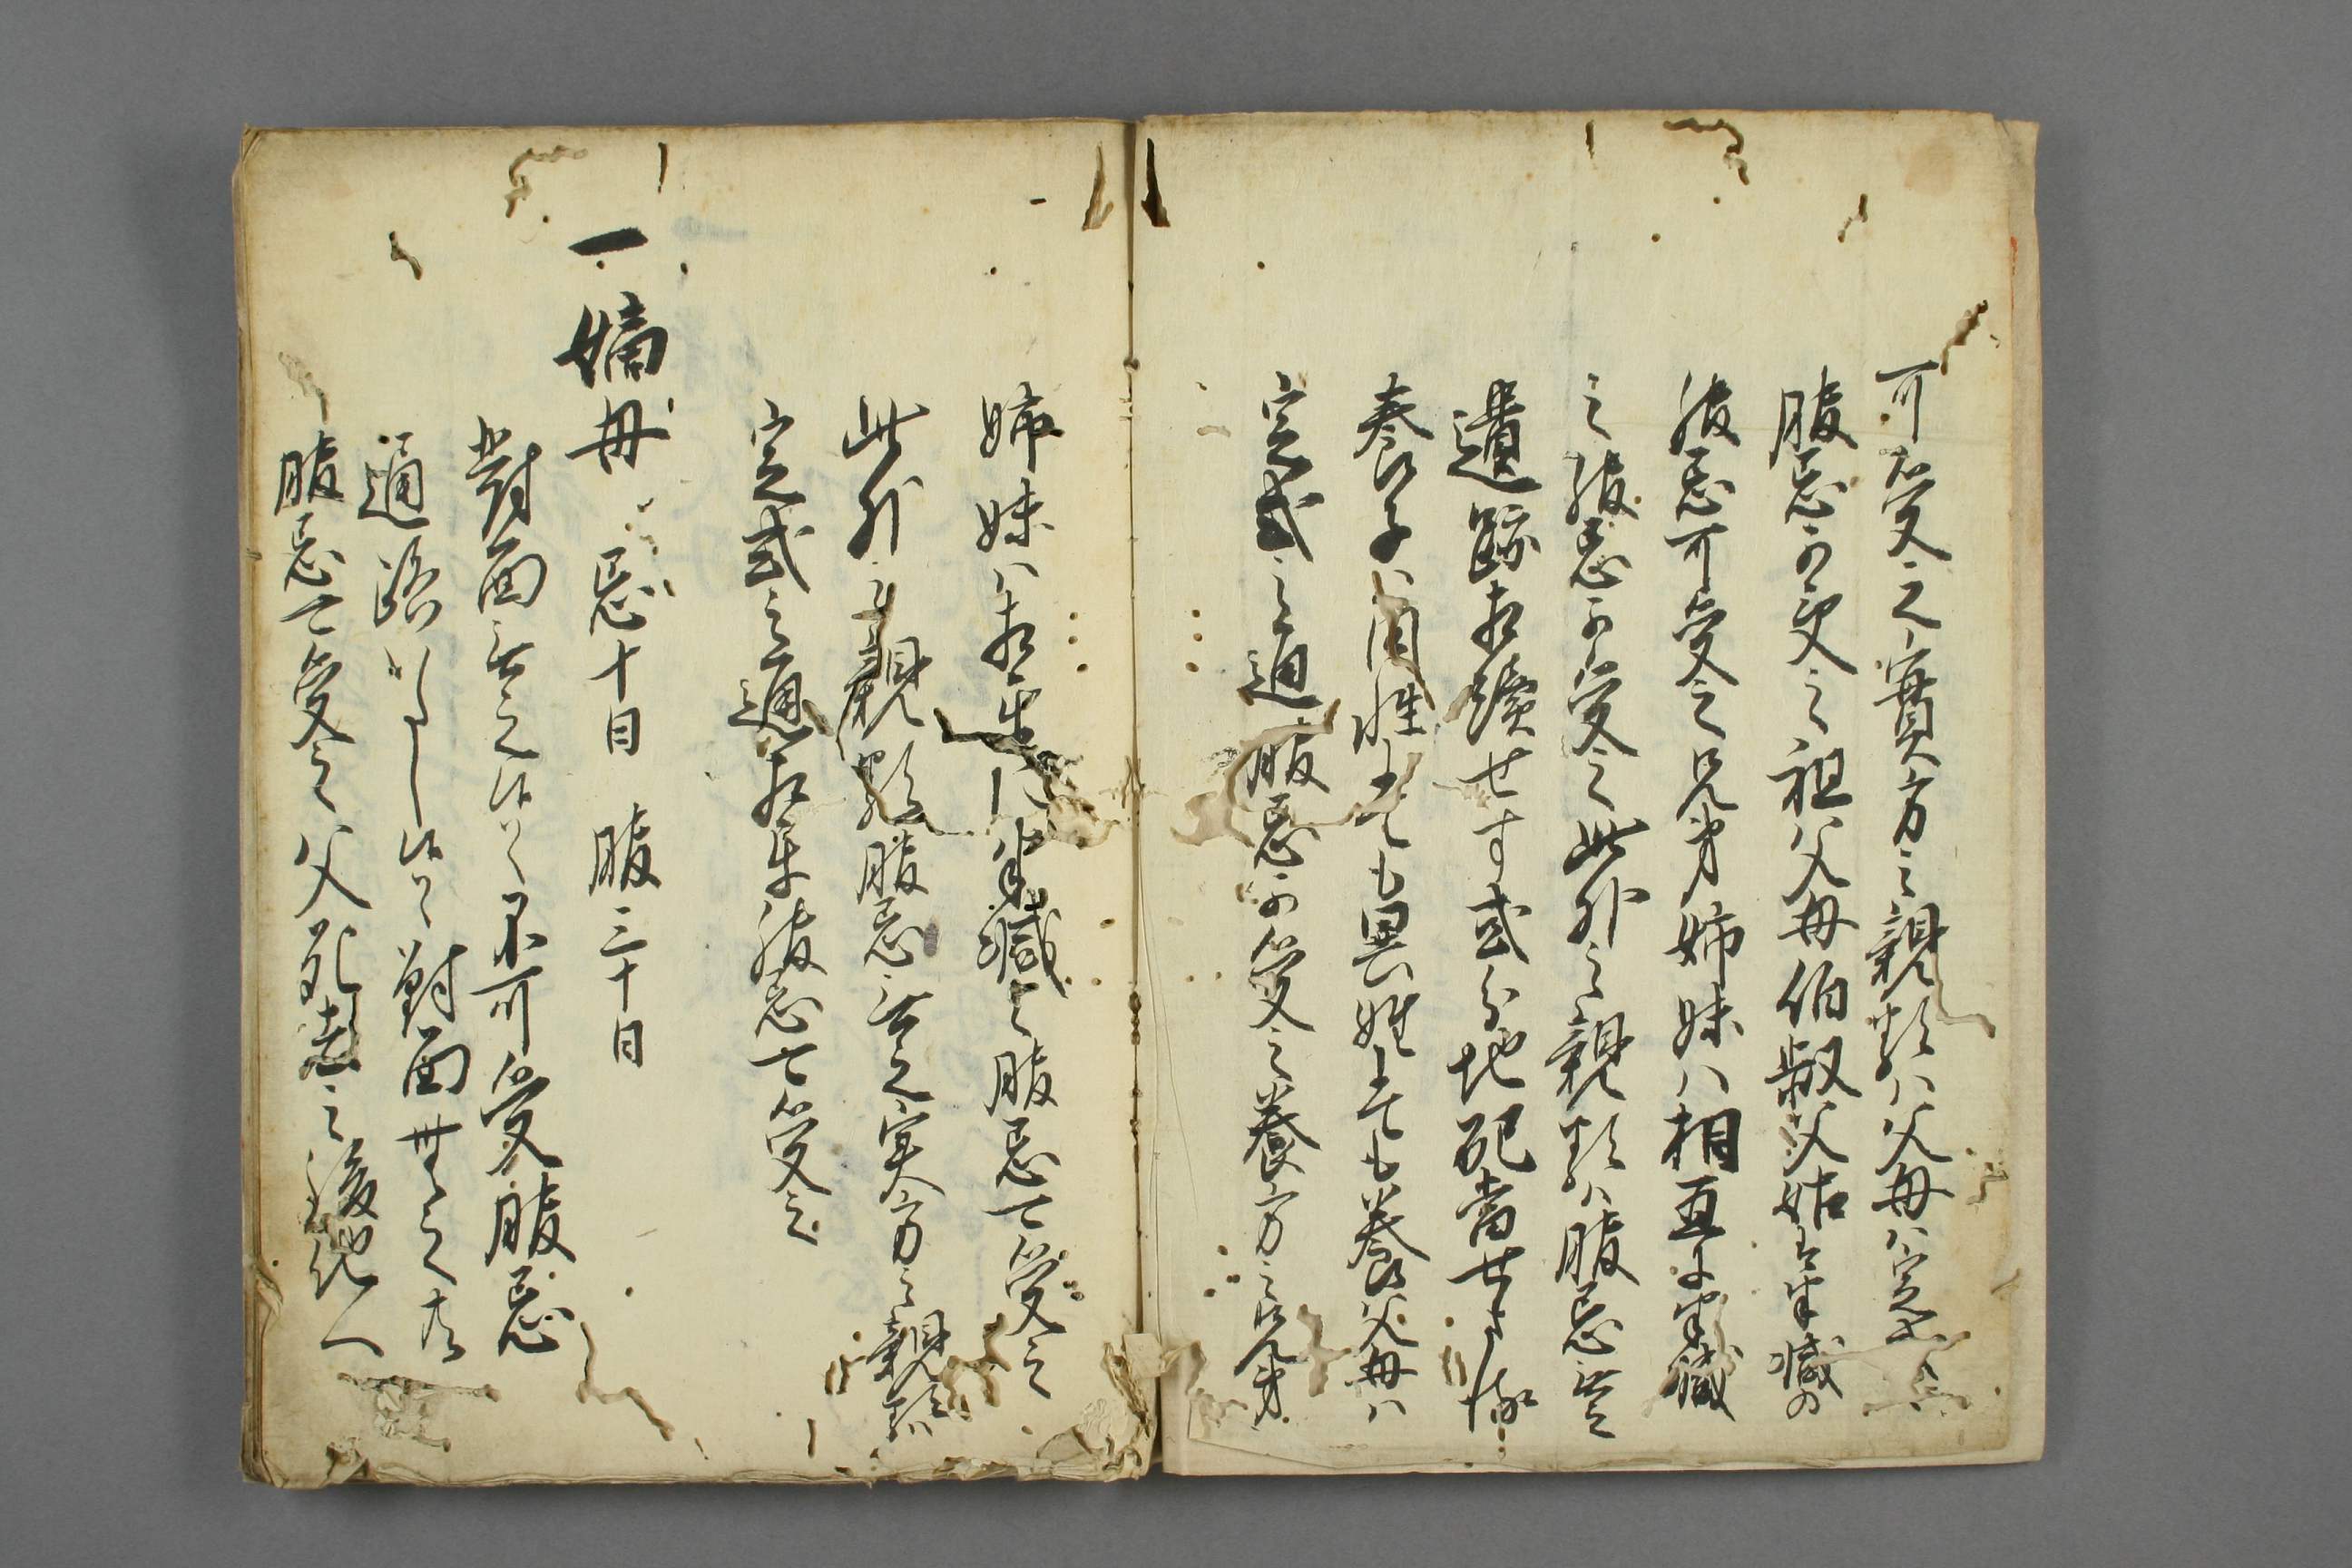 可受之實方之親類ハ父母ハ定式
服忌可受之祖父母伯叔父姑は半減の
服忌可受之兄弟姉妹ハ相互ニ半減
之服忌可受之此外之親類ハ服忌無之
遺跡相續せす或分地配当せさる
養子ハ同姓にても異姓にても養父母ハ
定式之通服忌可受之養方之兄弟
姉妹ハ相互に半減之服忌可受之
此外之親類服忌無之実方之親類
定式之通相互服忌可受之
一嫡母 忌十日 服三十日
對面無之候ハヽ不可受服忌
通路いたし候ハヽ對面無之共
服忌可受之父死去之後他へ